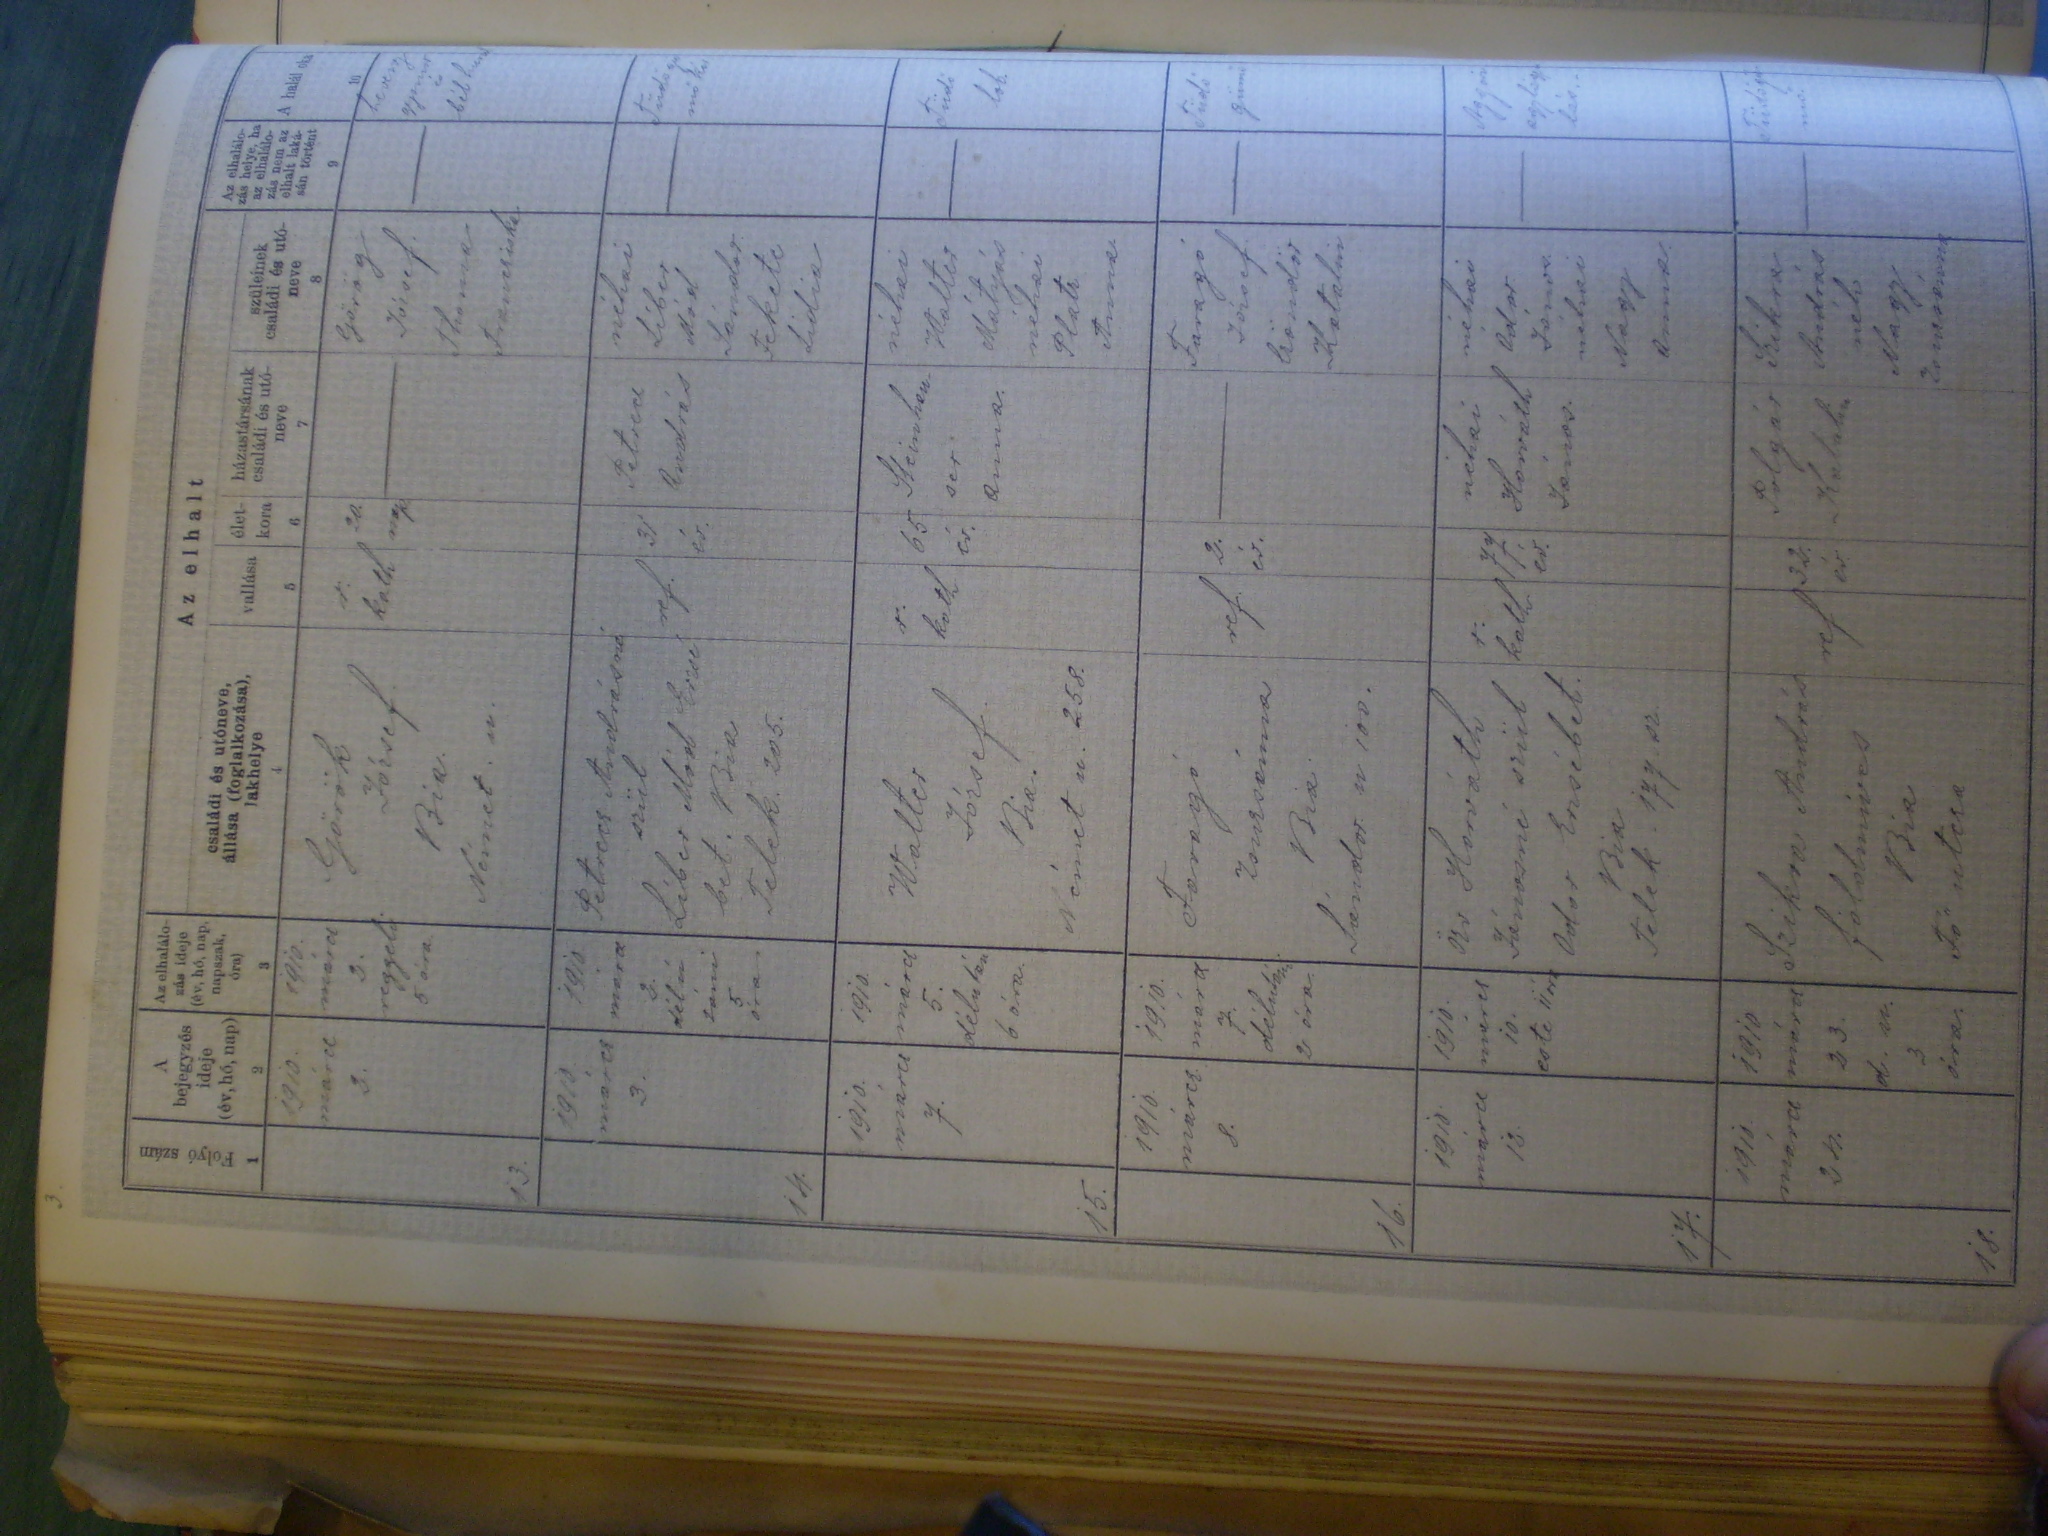 3.
Az elhalt
Folyó szám
A bejegyzés ideje (év, hó, nap)
Az elhalálo-
zás ideje
(év, hó, nap,
napszak,
óra)
családi és utóneve,
állása (foglalkozása),
lakhelye
vallása
élet-
kora
házastársának
családi és utó-
neve
szüleinek
családi és utó-
neve
Az elhalálo-
zás helye, ha
az elhalálo-
zás nem az
elhalt laká-
sán történt
A halál oka
1 2 3 4 5 6 7 8 9 10
13.
1910.
márcz
3.
1910.
márcz
3.
reggeli
5 óra.
Görök
József.
Bia.
Német. u.
r.
kath
20.
nap
Görög
József.
Thoma
Franciska.
14.
1910.
márcz
3.
1910.
márcz
3.
5
óra
Petrecs Andrásné
szül
Líber Mód Erzsé
bet. Bia
Telek. 205.
ref.
31
év.
Petrecs
András
néhai
Líber
Mód
Sándor
Fekete
Lidia
15.
1910.
márcz
7.
1910.
márcz
5.
délután
6 óra.
Walter
József.
Bia.
Német u. 258.
r.
kath
65
év.
Steinhau
ser
Anna.
néhai
Walter
Mátyás
néhai
Platz
Anna
Tüdő
lob.
16.
1910.
márcz
8.
1910.
márcz
7.
délután.
2 óra.
Faragó
Zsuzsánna
Bia.
Sándor u 100.
ref.
2.
év.
Faragó
József.
Göndör
Katalin
Tüdő
gümő
17.
1910.
márcz
1910.
márcz
10.
este 11 óra
Öz Horváth
Jánosné szül
Odor Erzsébet.
Bia
Telek. 177. sz.
r.
kath.
77
év.
néhai
Horváth
János.
néhai
Odor
János.
néhai
Nagy
Anna.
18.
1910.
márcz
24.
1910
márcz
23.
d. u.
3
óra.
Szikra András
földmíves
Bia
Fő utcza
ref
32.
év
Polgár
Katalin
Szikra
András
néh.
Nagy
Zsuzsánna